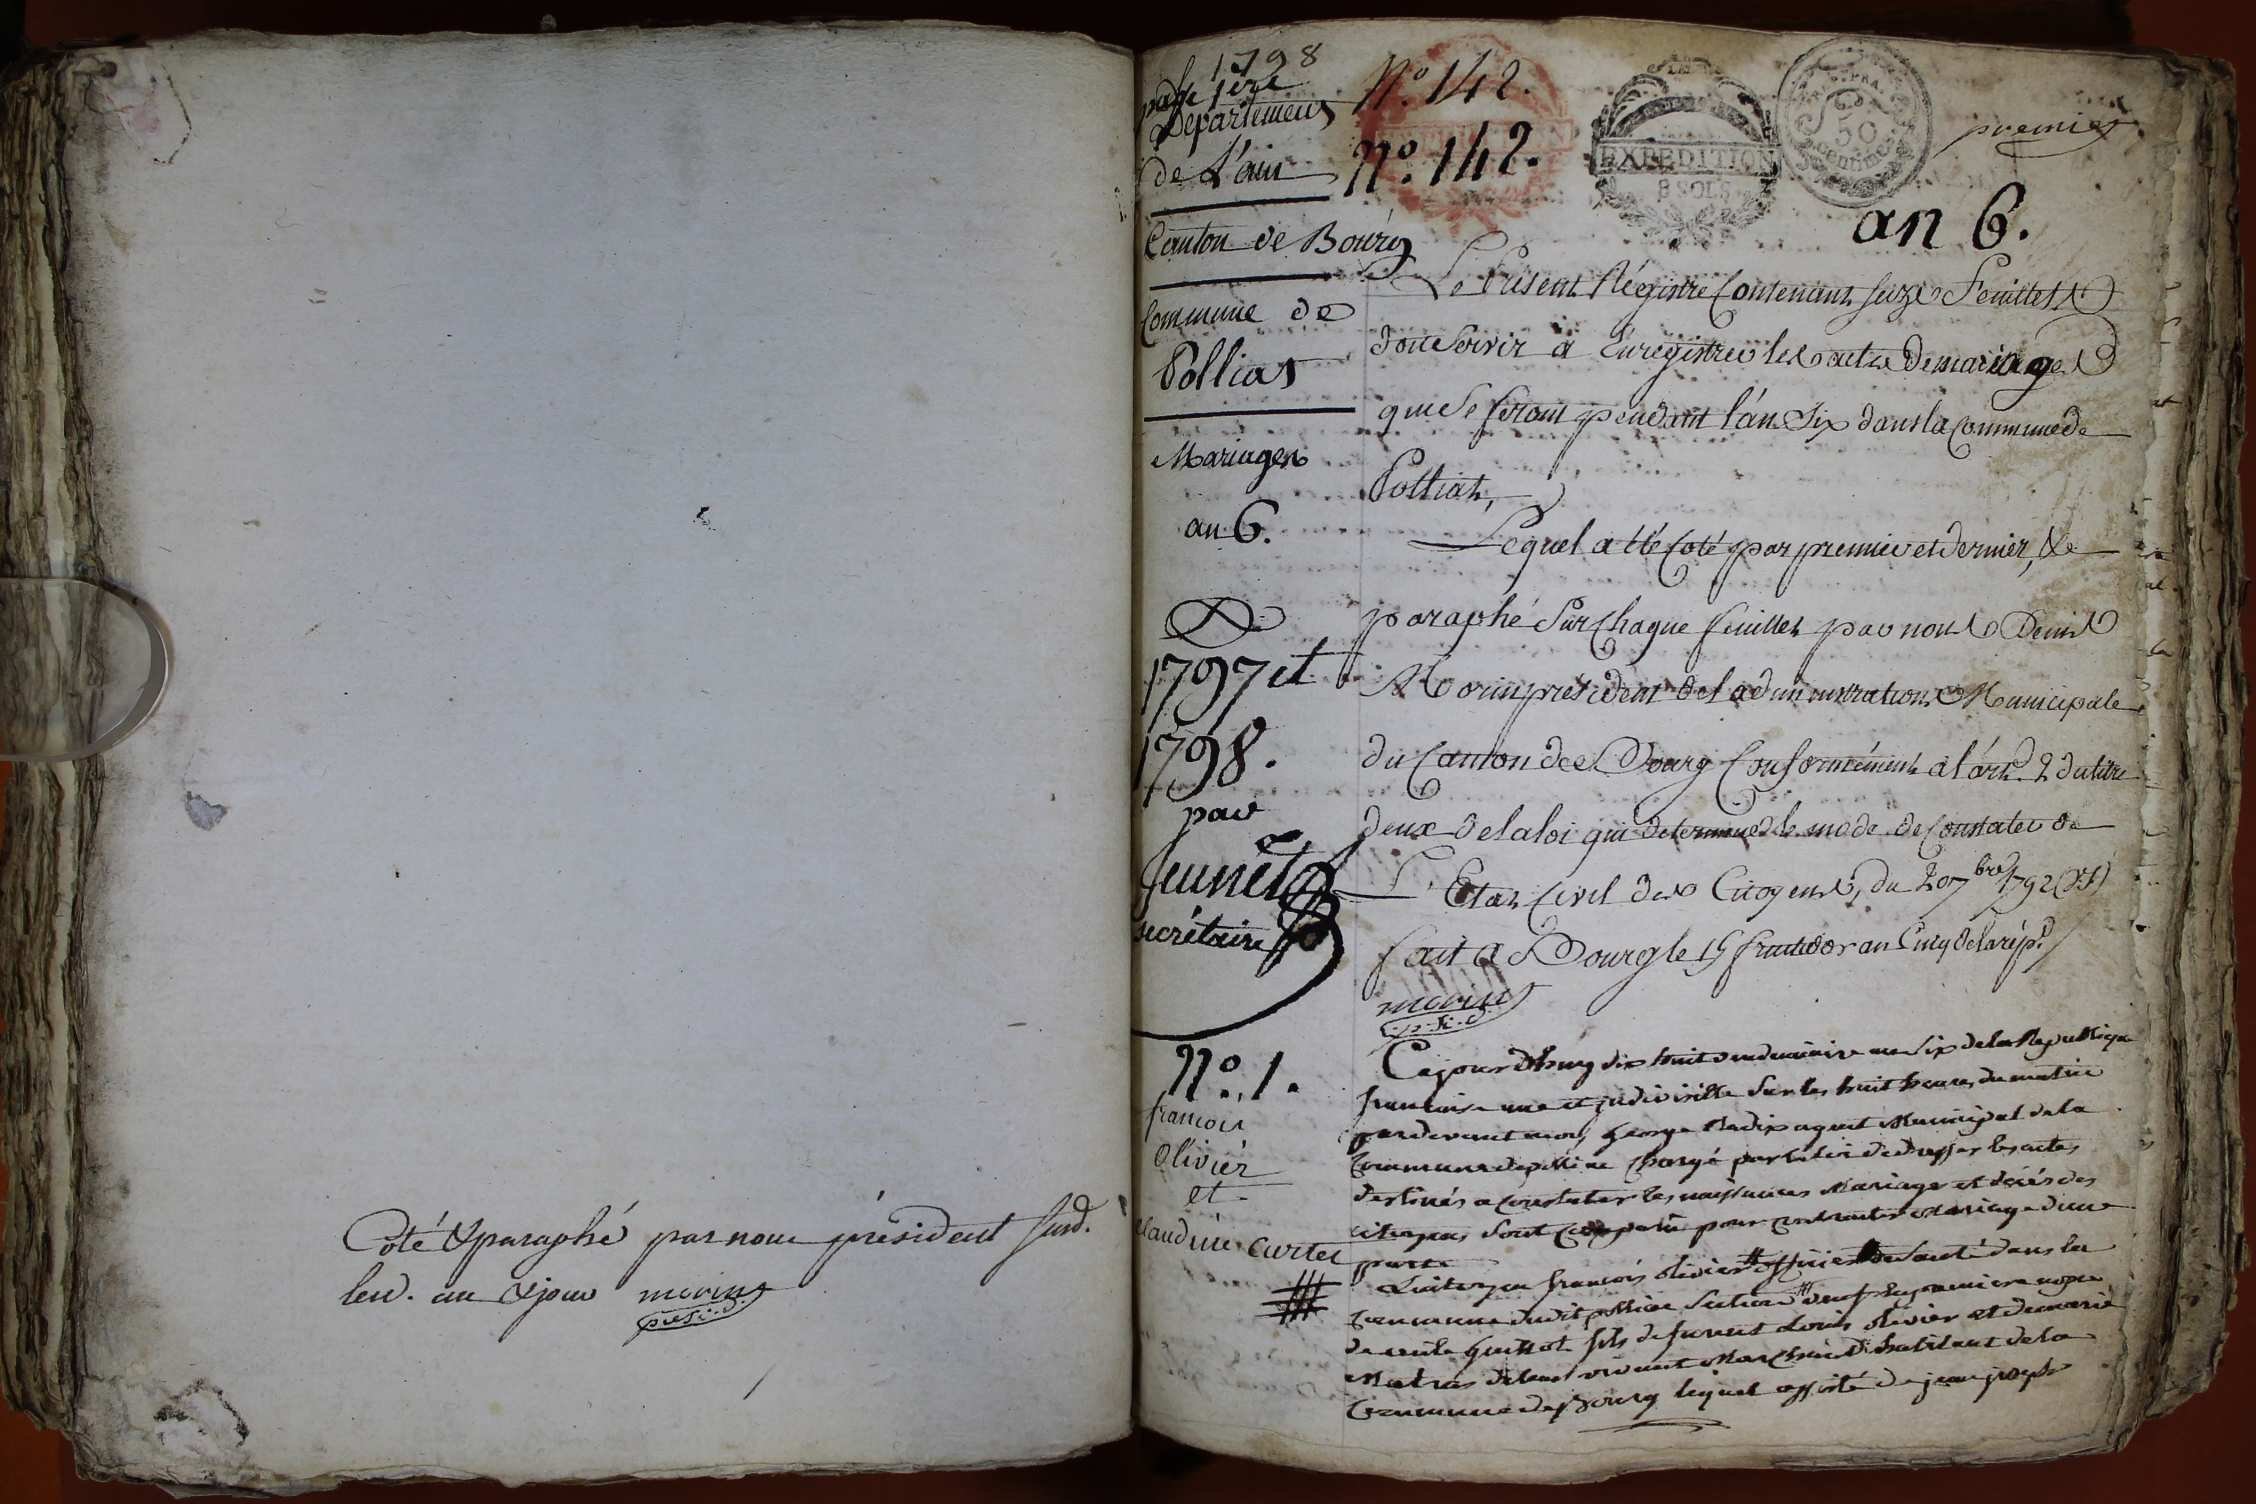 Coté & paraphé par nous président susd.
lesd. an & jour morin
presid.
1798
page 1ère
Departement
de L'ain
Canton de Bourg
Commune de
Polliat
Mariages
an 6.
1797 et
1798.
par
Jeunet
secrétaire
N.o 142.
N.o 142.
EXPEDITION
8 SOLS
50
Centimes
premier
an 6.
Le Présent Régistre Contenant seize Feuillets
doit Servir a Enregistrer les actes de mariages
qui Se feront pendant l'an Six dans la Commune de
Polliat,
Lequel a été Coté par premier et dernier, &
paraphé Sur Chaque feuillet par nous Denis
Morin president de l'administration Municipale
du Canton de Bourg Conformément a l'art. 2 du titre
deux de la loi qui determine le mode de Constater
L'Etat Civil des Citoyens, du 20 7bre 1792 (v.s)
fait a Bourg le 15 fructidor an Cinq de la rép.
morin
p.si.d.
N.o 1.
francois
Olivier
et
Claudine Curtet
Cejourdhuy dix huit vendemiaire an Six de la Republique
francaise une et indivisible Sur les huit heures du matin
pardevant moy George Radix agent Municipal de la
Commune de polliat Chargé par la loi de dresser les actes
destinés a Constater les naissances Mariages et décés des
citoyens Sont Comparu pour contracter Mariage d'une
part
Le citoyen francois olivier officier de Santé dans la
Commune dudit polliat veuf en premiere nopce
de guillot fils de furent Louis olivier et de marie
de leur vivant Marchand habitant de la
Commune de Bourg lequel assisté de jean joseph